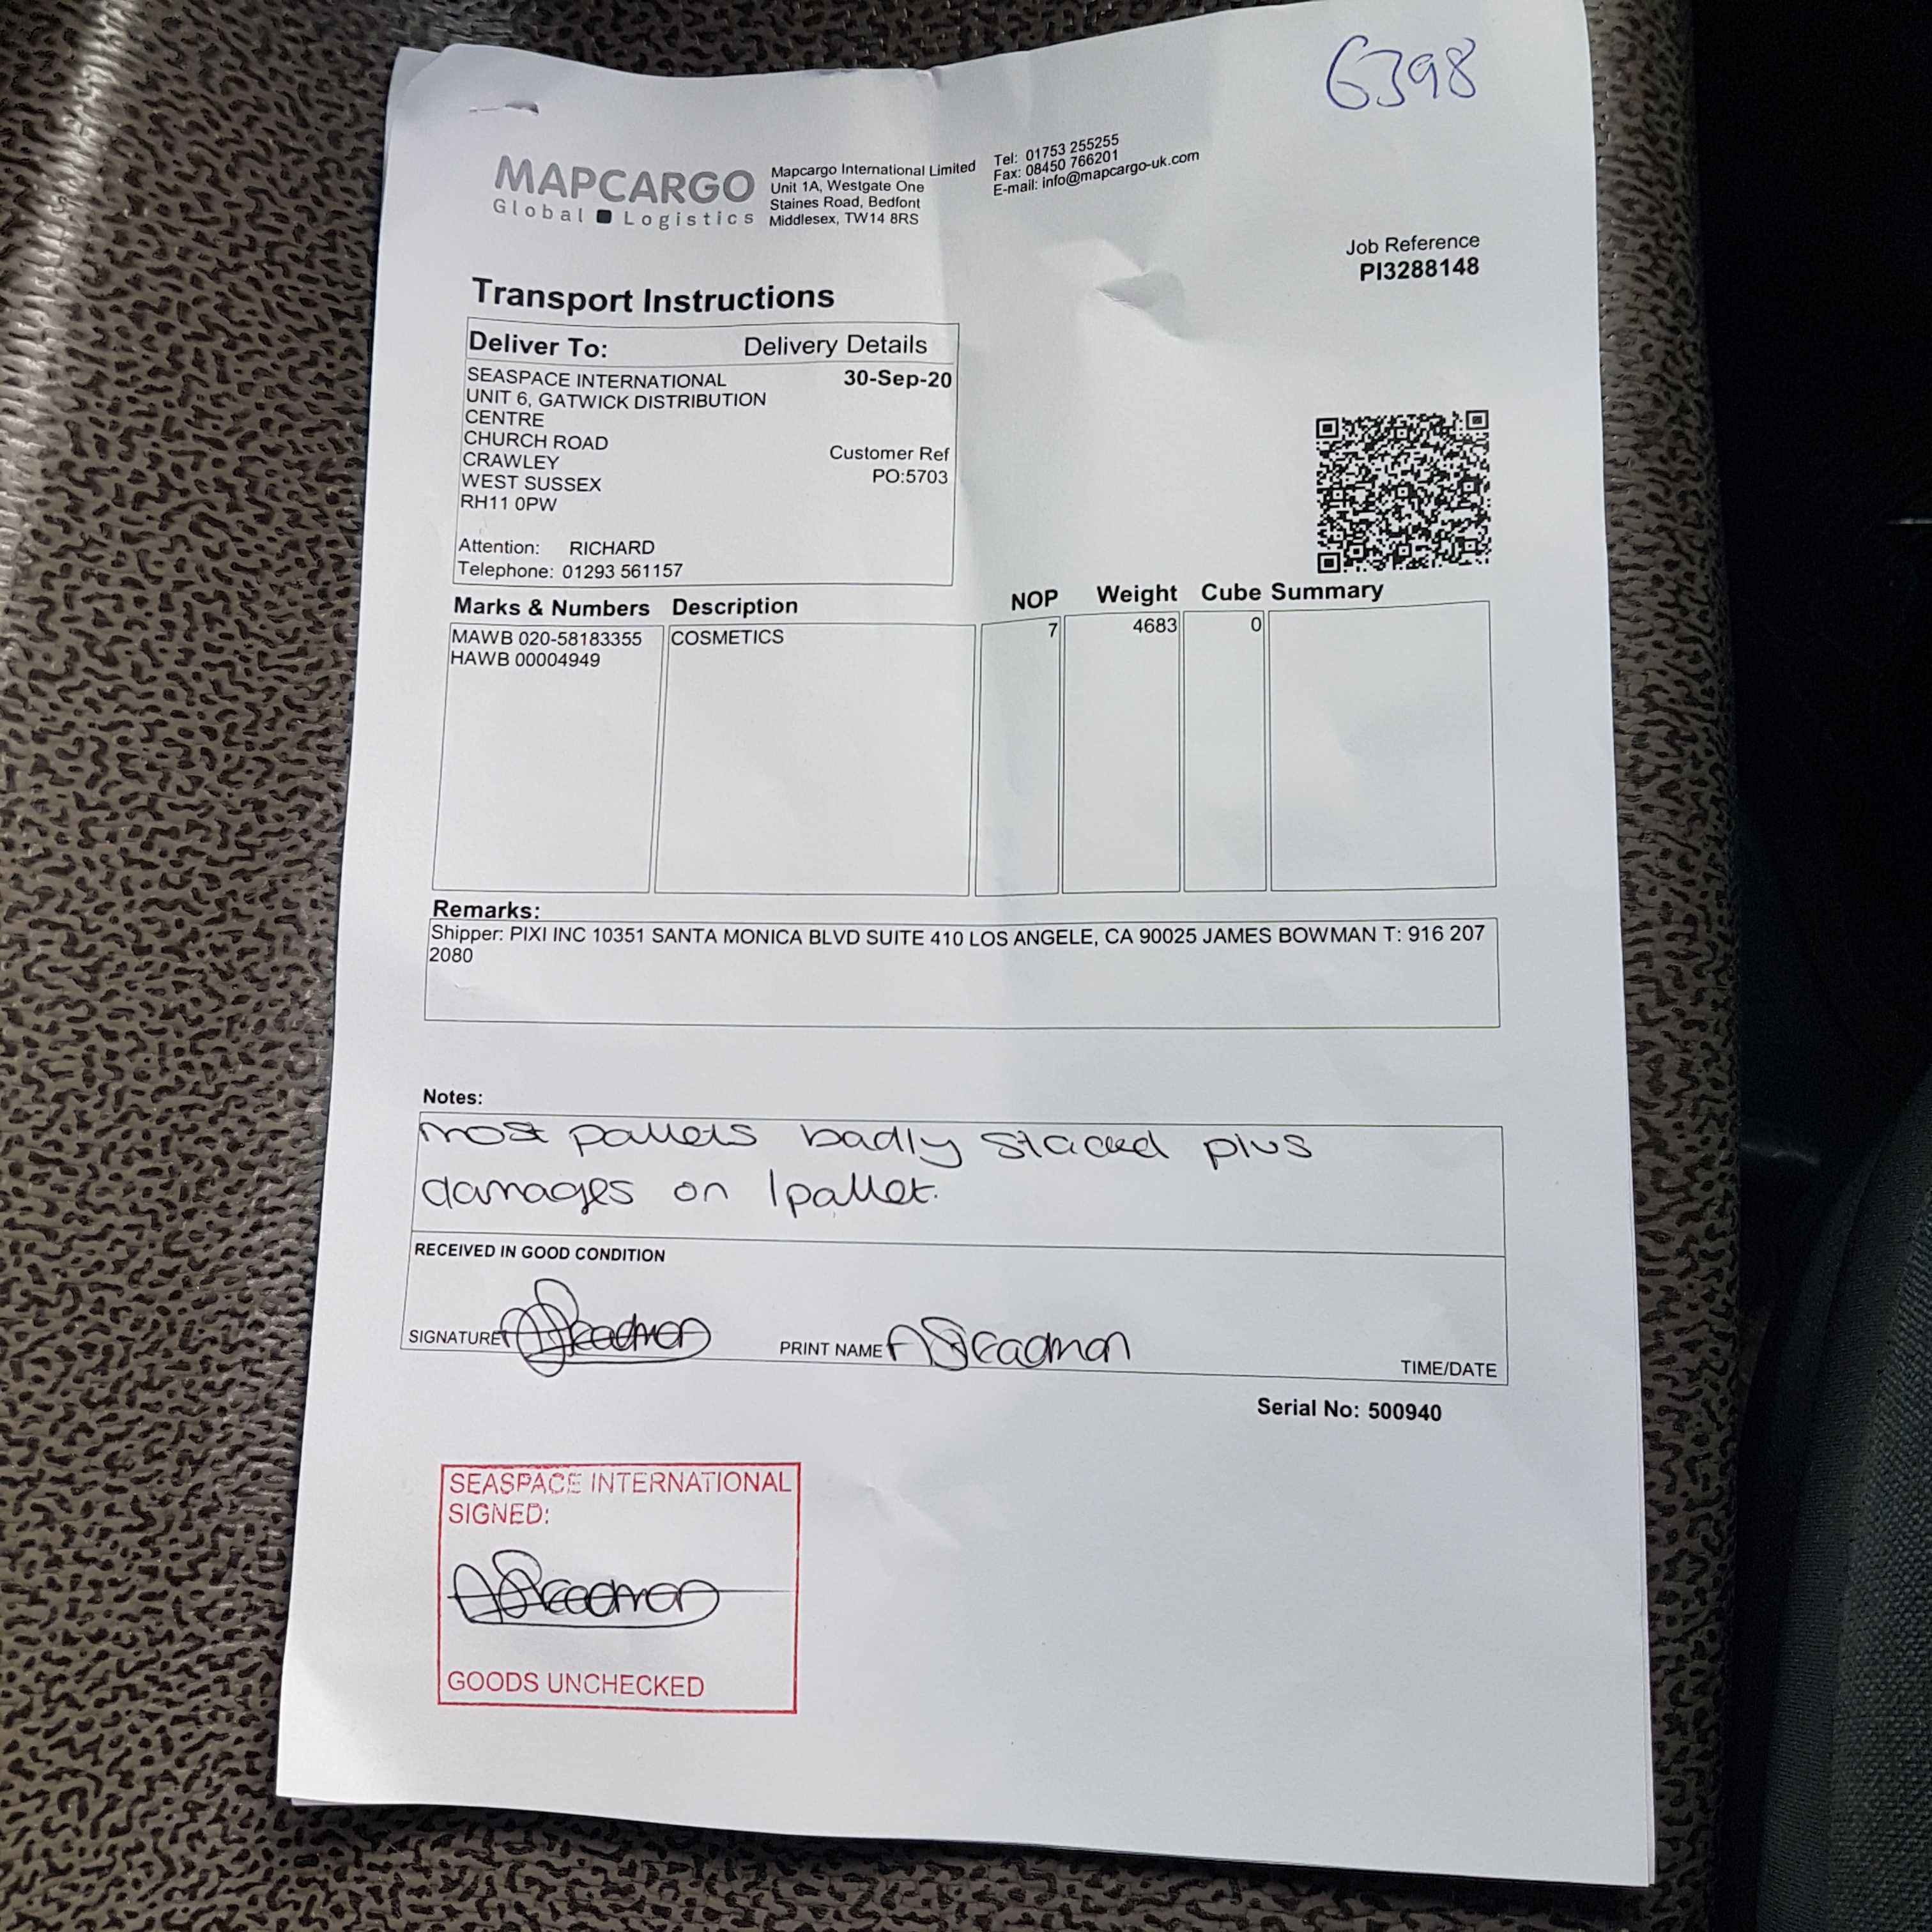 6398
MAPCARGO
Global Logistics
Mapcargo International Limited
Unit 1A, Westgate One
Staines Road, Bedfont
Middlesex, TW14 8RS
Tel: 01753 255255
Fax: 08450 766201
E-mail: info@mapcargo-uk.com
Job Reference
PI3288148
Transport Instructions
Deliver To: Delivery Details
SEASPACE INTERNATIONAL 30-Sep-20
UNIT 6, GATWICK DISTRIBUTION
CENTRE
CHURCH ROAD
CRAWLEY Customer Ref
WEST SUSSEX PO:5703
RH11 0PW
Attention: RICHARD
Telephone: 01293 561157
Marks & Numbers Description NOP Weight Cube Summary
MAWB 020-58183355 COSMETICS 7 4683 0
HAWB 00004949
Remarks:
Shipper: PIXI INC 10351 SANTA MONICA BLVD SUITE 410 LOS ANGELE, CA 90025 JAMES BOWMAN T: 916 207
2080
Notes:
most pallets badly stacked plus
damages on 1 pallet.
RECEIVED IN GOOD CONDITION
SIGNATURE PRINT NAME TIME/DATE
Serial No: 500940
SEASPACE INTERNATIONAL
SIGNED:
GOODS UNCHECKED